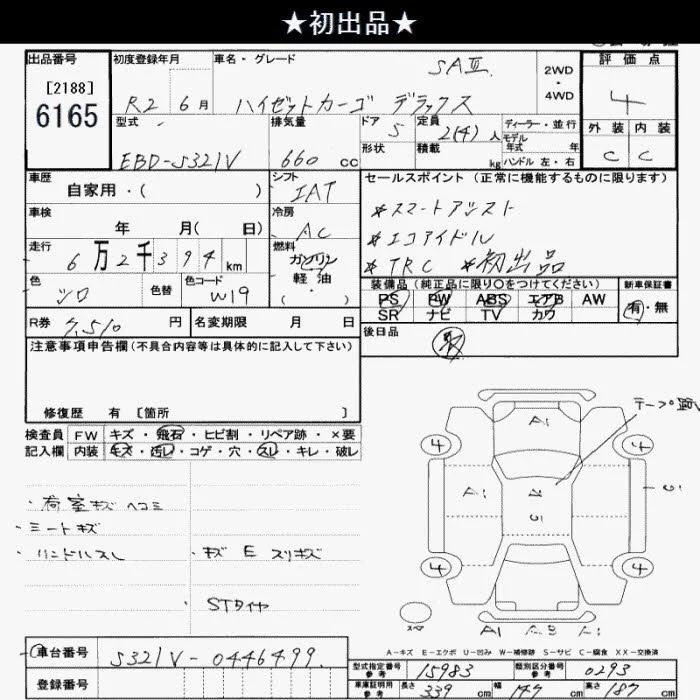 ★初出品★
出品番号
初度登録年月
車名・グレード
評価点
[2188]
6165
R2 6月
ハイゼットカーゴ デラックス
SAⅢ
2WD
・
4WD
4
型式
排気量
ドア
定員
ディーラー・並行
外装 内装
EBD-S321V
660 cc
5
2(4)人
モデル
年式 年
形状
積載
kg
ハンドル 左・右
C C
車歴
自家用・( )
シフト
IAT
セールスポイント(正常に機能するものに限ります)
車検
年 月( 日)
冷房
AC
*スマートアシスト
*エコアイドル
*TRC *初出品
走行
6万2千394 km
燃料
ガソリン
軽油
( ・ )
色
シロ
色替
色コード
W19
装備品(純正品に限り○をつけてください)
新車保証書
PS PW ABS エアB AW
SR ナビ TV カワ
有・無
R券
7,510 円
名変期限 月 日
後日品
注意事項申告欄(不具合内容等は具体的に記入して下さい)
修復歴 有 [箇所 ]
検査員 FW キズ・飛石・ヒビ割・リペア跡・×要
記入欄 内装 キズ・汚レ・コゲ・穴・スレ・キレ・破レ
・荷室キズ ヘコミ
・シートキズ
・ハンドルスレ
・キズ E スリキズ
・STタイヤ
A1
4 4
A1
4 4
A1
A-キズ E-エクボ U-凹み W-補修跡 S-サビ C-腐食 XX-交換済
車台番号
S321V-0446499
型式指定番号
参考
15983
類別区分番号
参考
0293
登録番号
車庫証明用
参考
長さ 339 cm
幅 147 cm
高さ 187 cm